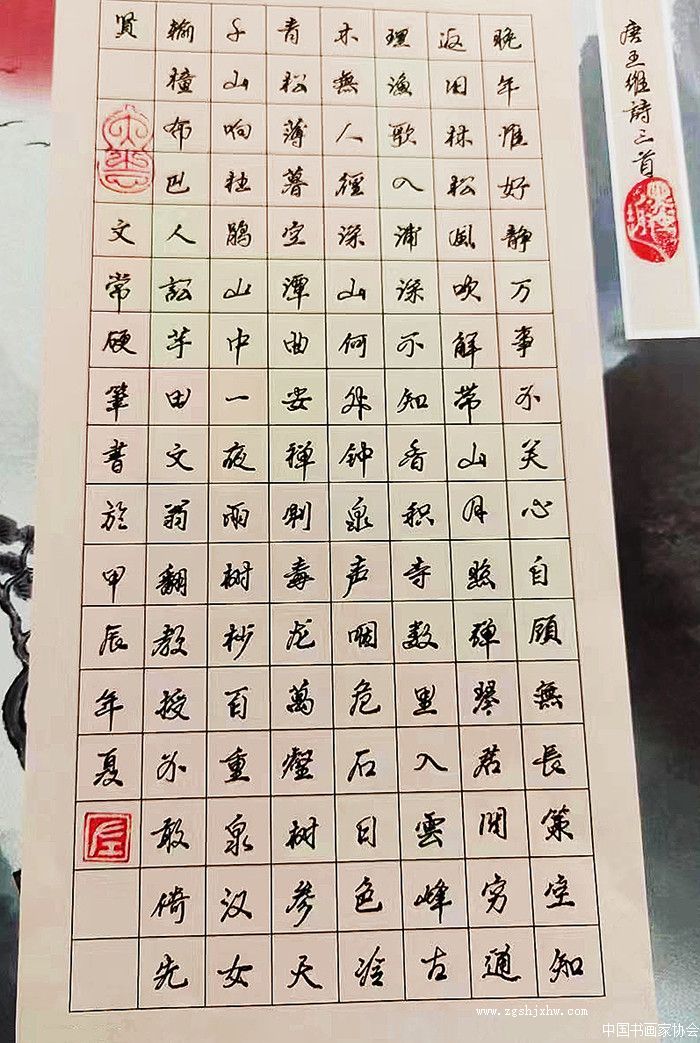 唐王维詩三首
晚年惟好静万事不关心自顾無長策空知
返旧林松風吹解带山月照弹琴君问穷通
理渔歌入浦深不知香积寺数里入雲峰古
木無人径深山何处钟泉声咽危石日色冷
青松薄暮空潭曲安禅制毒龙萬壑树参天
千山响杜鹃山中一夜雨树杪百重泉汉女
输橦布巴人訟芋田文翁翻教授不敢倚先
贤
文常硬筆書於甲辰年夏
www.zgshjxhw.com
中国书画家协会